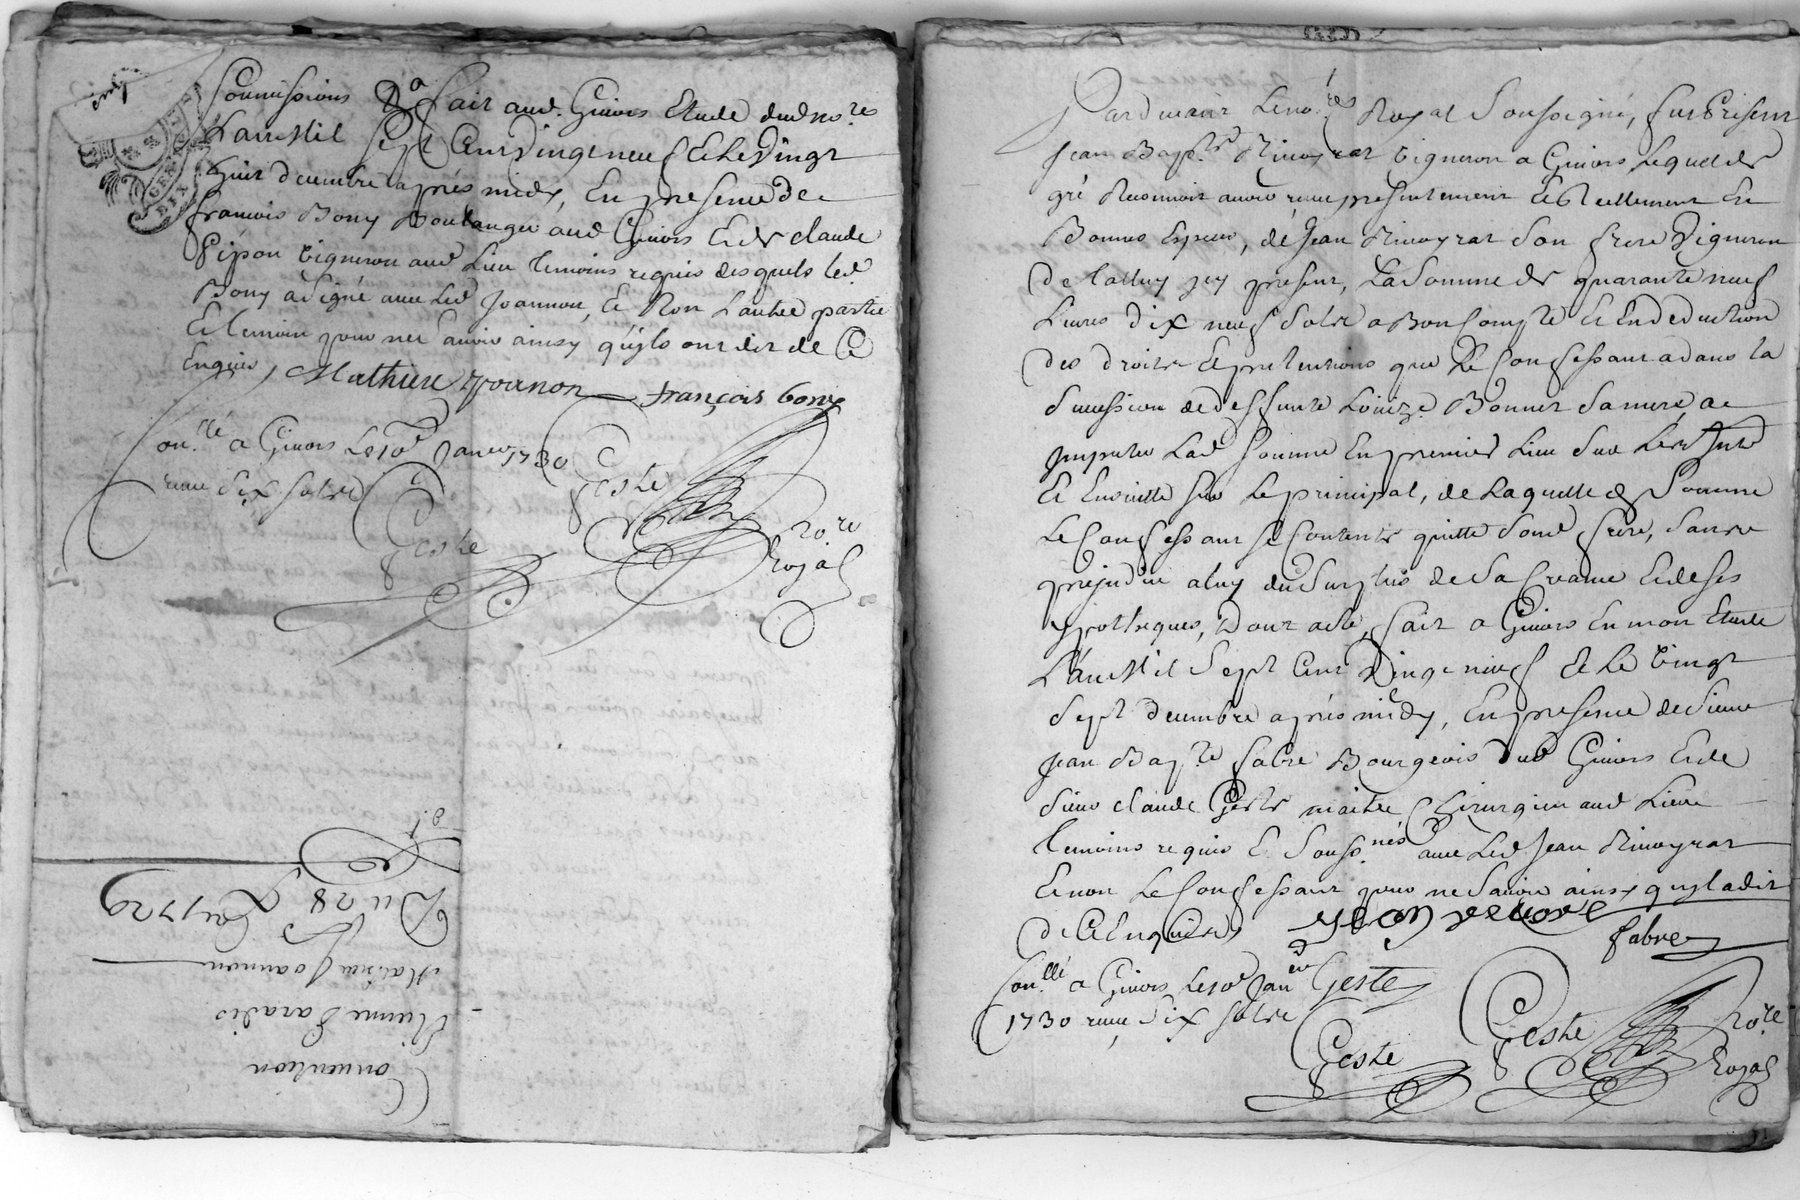 Soumissions &a fait aud. Givors Etude dud nore
L'an Mil Sept Cent Vingt neuf Et le Vingt
huit decembre après midy, En presence de
francois Bony Boulanger aud Givors Et de claude
Pipon vigneron aud Lieu temoins requis desquels led
Bony a signé avec Led Joannon, Et Non L'autre partie
Et temoin pour ne sçavoir ainsy qu'ils ont dit de Ce
Enquis,
Mathieu Joannon françois bony
Con.llé a Givors Le 10e Janer 1730
reçu dix sols
Geste
Geste
No.re
Royal
Du 28 xbre 1729
Mathieu Joannon
Etienne Paradis
Convention
Pardevant Le no.re Royal Soussigné, fut Present
Jean Bap.te Rivoyrat vigneron a Givors Lequel de
gré Reconnoit avoir reçu presentement Et Reellement En
Bonnes Especes, de Jean Rivoyrat Son frere Vigneron
de icy present, La Somme de quarante neuf
Livres dix neuf Sols a Bon Compte Et En deduction
des droits Et pretentions que Le Confessant a dans la
Succession de deffunte Bonnet Sa mere, a
imputer Lad Somme En premier Lieu Sur Les Ints
Et Ensuitte Sur Le principal, de Laquelle Somme
Le Confessant se Contente quitte Sond frere, Sans
prejudice a luy du Surplus de Sa Creance Et de Ses
ypotheques, Dont acte, fait a Givors En mon Etude
L'an Mil Sept Cent Vingt neuf Et Le Vingt
Sept decembre après midy, En presence de Sieur
Jean Bap.te fabre Bourgeois dud Givors Et de
Sieur claude Geste maitre Chirurgien aud Lieu
temoins requis Et Souss.nés avec Led Jean Rivoyrat
Et non Le Confessant pour ne Sçavoir ainsy qu'il a dit
de Ce Enquis
fabre
Con.llé a Givors Le 10e Janer
1730 reçu dix sols
Geste
Geste
Geste
No.re
Royal